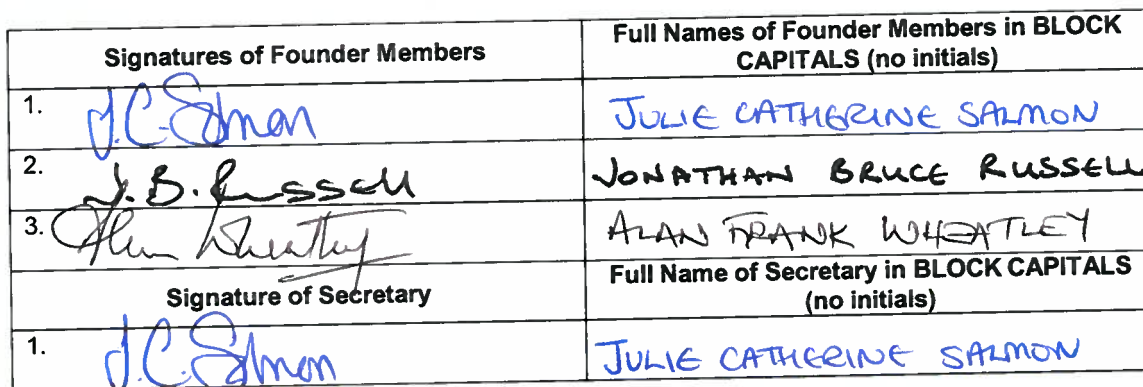 Signatures of Founder Members
Full Names of Founder Members in BLOCK
CAPITALS (no initials)
1. J.C. Salmon
JULIE CATHERINE SALMON
2. J. B. Russell
JONATHAN BRUCE RUSSELL
3. Alan Wheatley
ALAN FRANK WHEATLEY
Signature of Secretary
Full Name of Secretary in BLOCK CAPITALS
(no initials)
1. J.C. Salmon
JULIE CATHERINE SALMON